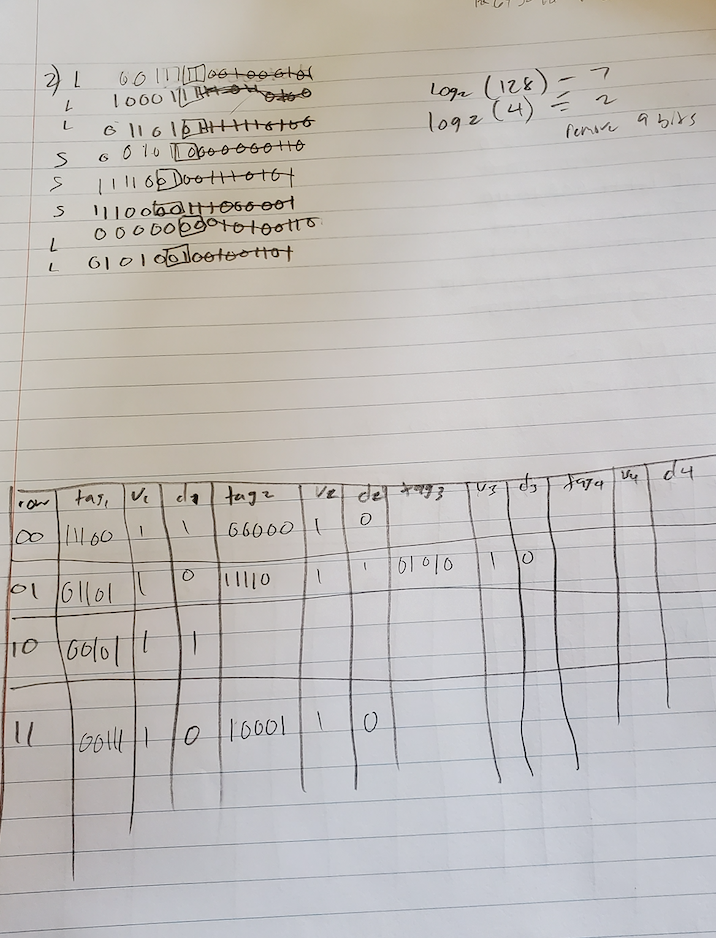 2) L 00111 11 00100 0101
log₂ (128) = 7
L 10001 11
log₂ (4) = 2
L 01101 01 1111 10100
remove 9 bits
S 00101 10 000000110
S 11110 01 001110101
S 11100 00 111000001
L 00000 00 010100110
L 01010 01 001001101
row tag₁ v₁ d₁ tag₂ v₂ d₂ tag3 v3 d3 tag4 v4 d4
00 11100 1 1 00000 1 0
01 01101 1 0 11110 1 1 01010 1 0
10 00101 1 1
11 00111 1 0 10001 1 0